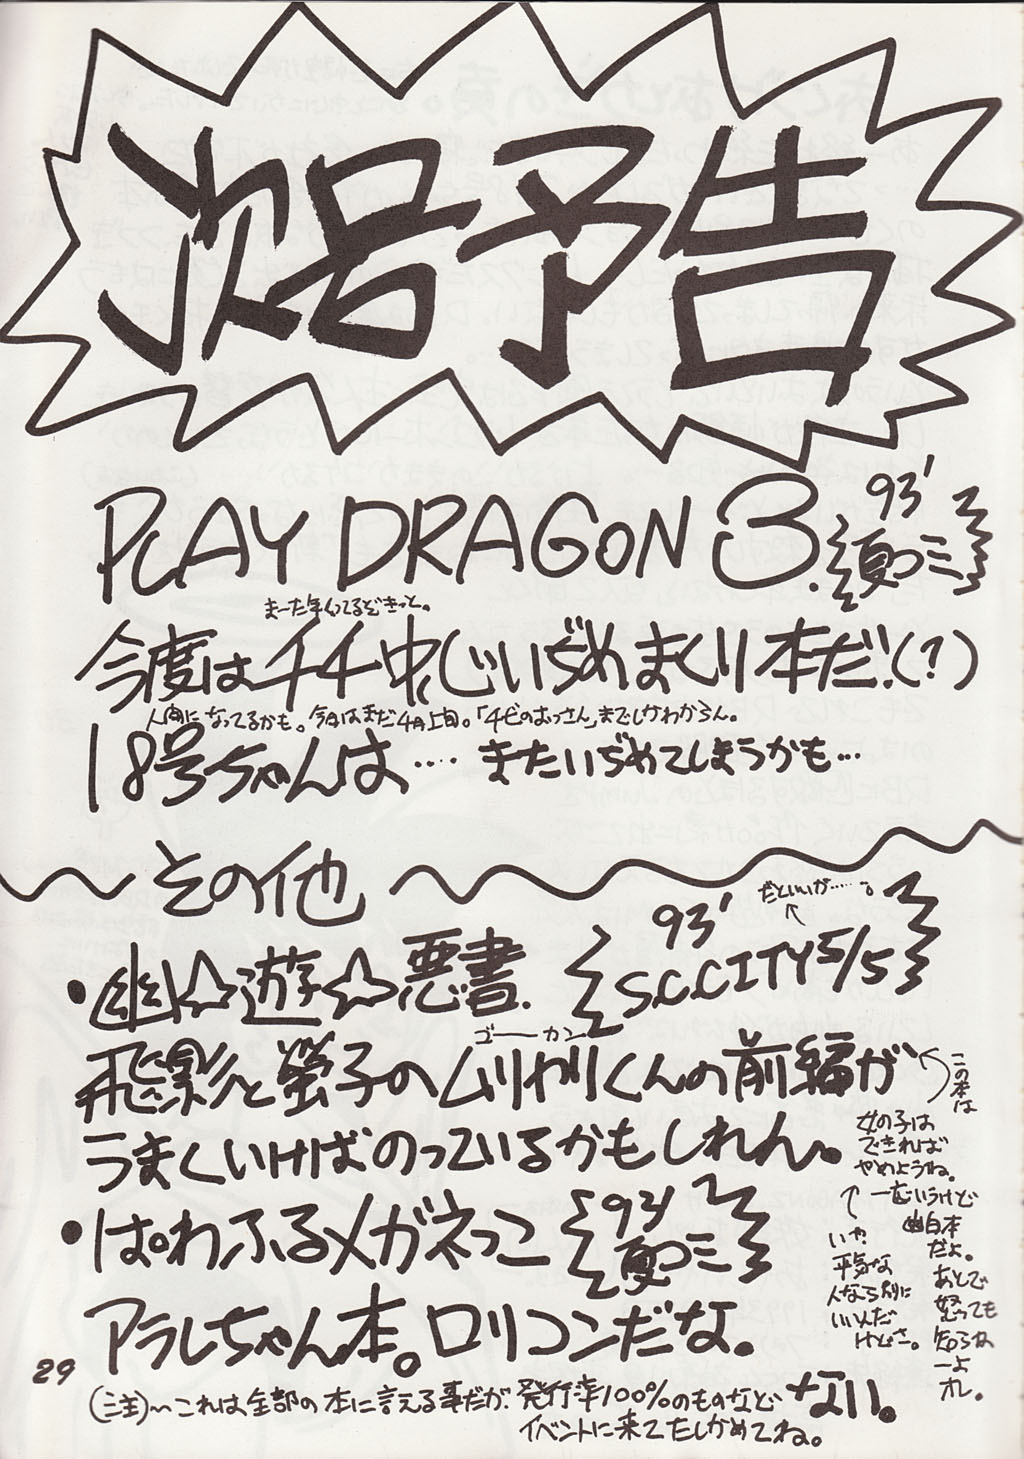 次号予告
PLAY DRAGON 3.
93'
夏コミ
まーた年くってるぞきっと。
今度はチチ中心いぢめまくり本だ!(?)
人間になってるかも。今日はまだ4月上旬。「4代のおっさん」までしかわからん。
18号ちゃんは…. またいぢめてしまうかも…
その他
・幽☆遊☆悪書.
93'
S.C.CITY5/5
だといいが……。
ゴーカン
飛影と螢子のムリヤリくんの前編が
うまくいけばのっているかもしれん。
この本は
女の子は
できれば
やめようね。
一応いうけど
幽白本
だよ。
あとで
怒っても
知らね
ーよ
オレ。
いや
平気な
人なら別に
いいんだ
けどさ。
・ぱわふるメガネっこ
93'
夏コミ
アラレちゃん本。ロリコンだな。
29
(注)〜これは全部の本に言える事だが、発行率100%のものなどない。
イベントに来てたしかめてね。